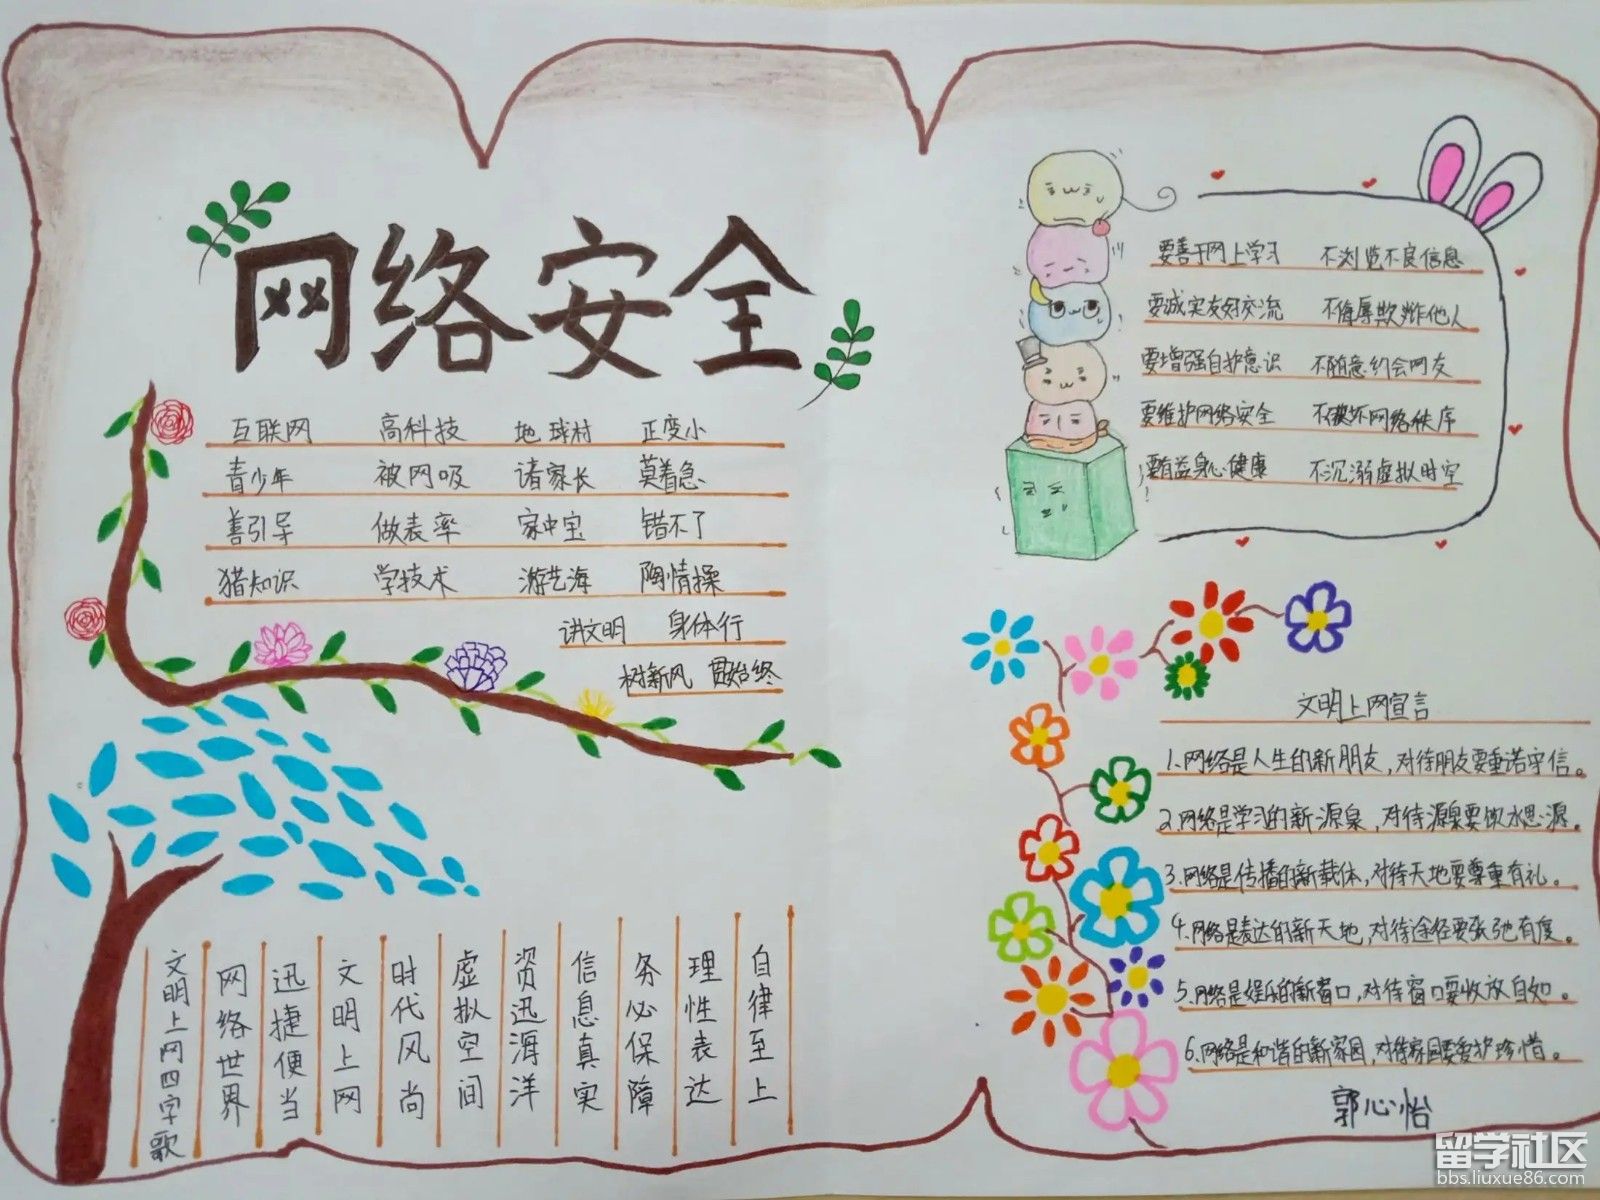 网络安全
互联网 高科技 地球村 正变小
青少年 被网吸 诸家长 莫着急
善引导 做表率 家中宝 错不了
猎知识 学技术 游艺海 陶情操
讲文明 身体行
树新风 贯始终
文明上网四字歌
网络世界
迅捷便当
文明上网
时代风尚
虚拟空间
资迅海洋
信息真实
务必保障
理性表达
自律至上
要善于网上学习 不浏览不良信息
要诚实友好交流 不侮辱欺诈他人
要增强自护意识 不随意约会网友
要维护网络安全 不破坏网络秩序
要有益身心健康 不沉溺虚拟时空
文明上网宣言
1.网络是人生的新朋友,对待朋友要重诺守信。
2.网络是学习的新源泉,对待源泉要饮水思源。
3.网络是传播的新载体,对待天地要尊重有礼。
4.网络是表达的新天地,对待途径要张弛有度。
5.网络是娱乐的新窗口,对待窗口要收放自如。
6.网络是和谐的新家园,对待家园要爱护珍惜。
郭心怡
留学社区
bbs.liuxue86.com